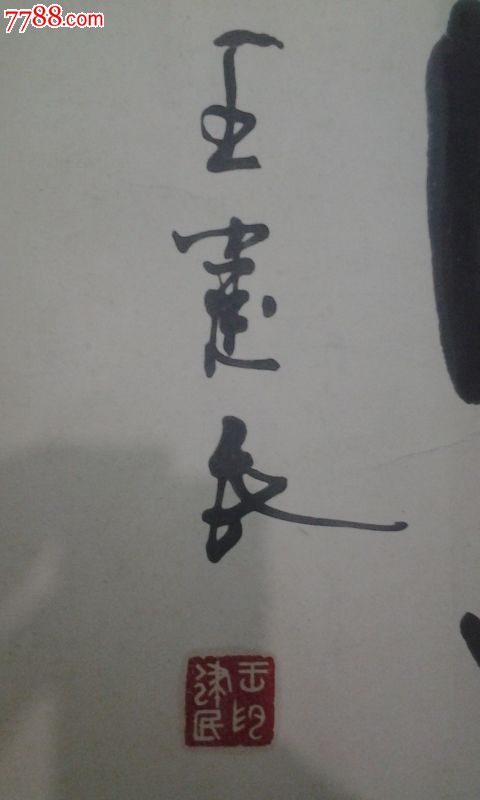 7788.com
王建民
王印
建民